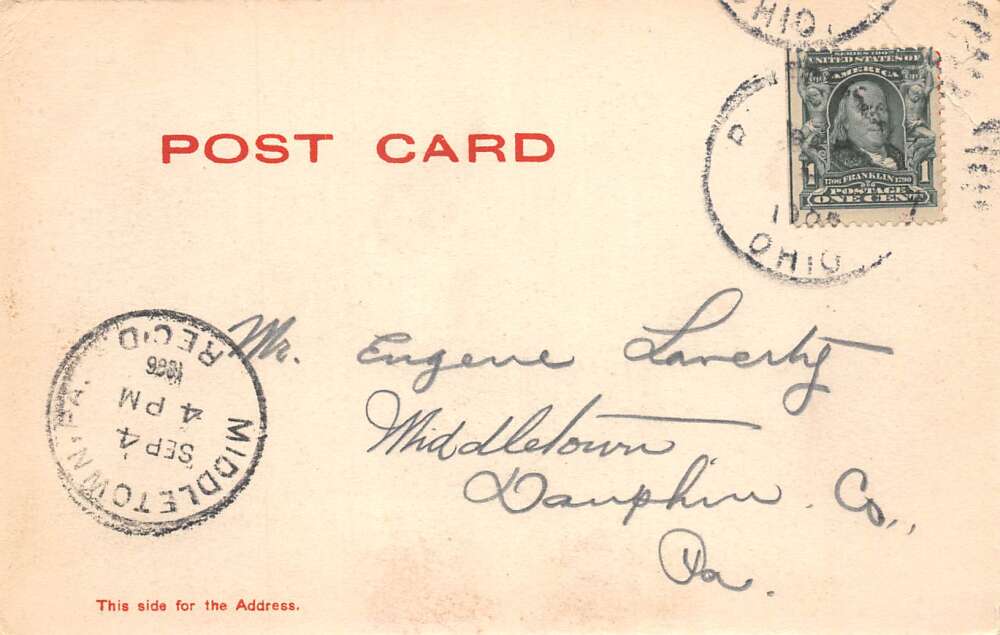 POST CARD
OHIO
SERIES 1902
UNITED STATES OF
AMERICA
1 1
1706 FRANKLIN 1790
POSTAGE
ONE CENT
OHIO
Mr. Eugene Laverty
Middletown
Dauphin Co.,
Pa.
MIDDLETOWN, PA.
SEP 4
4 PM
1906
REC'D.
This side for the Address.